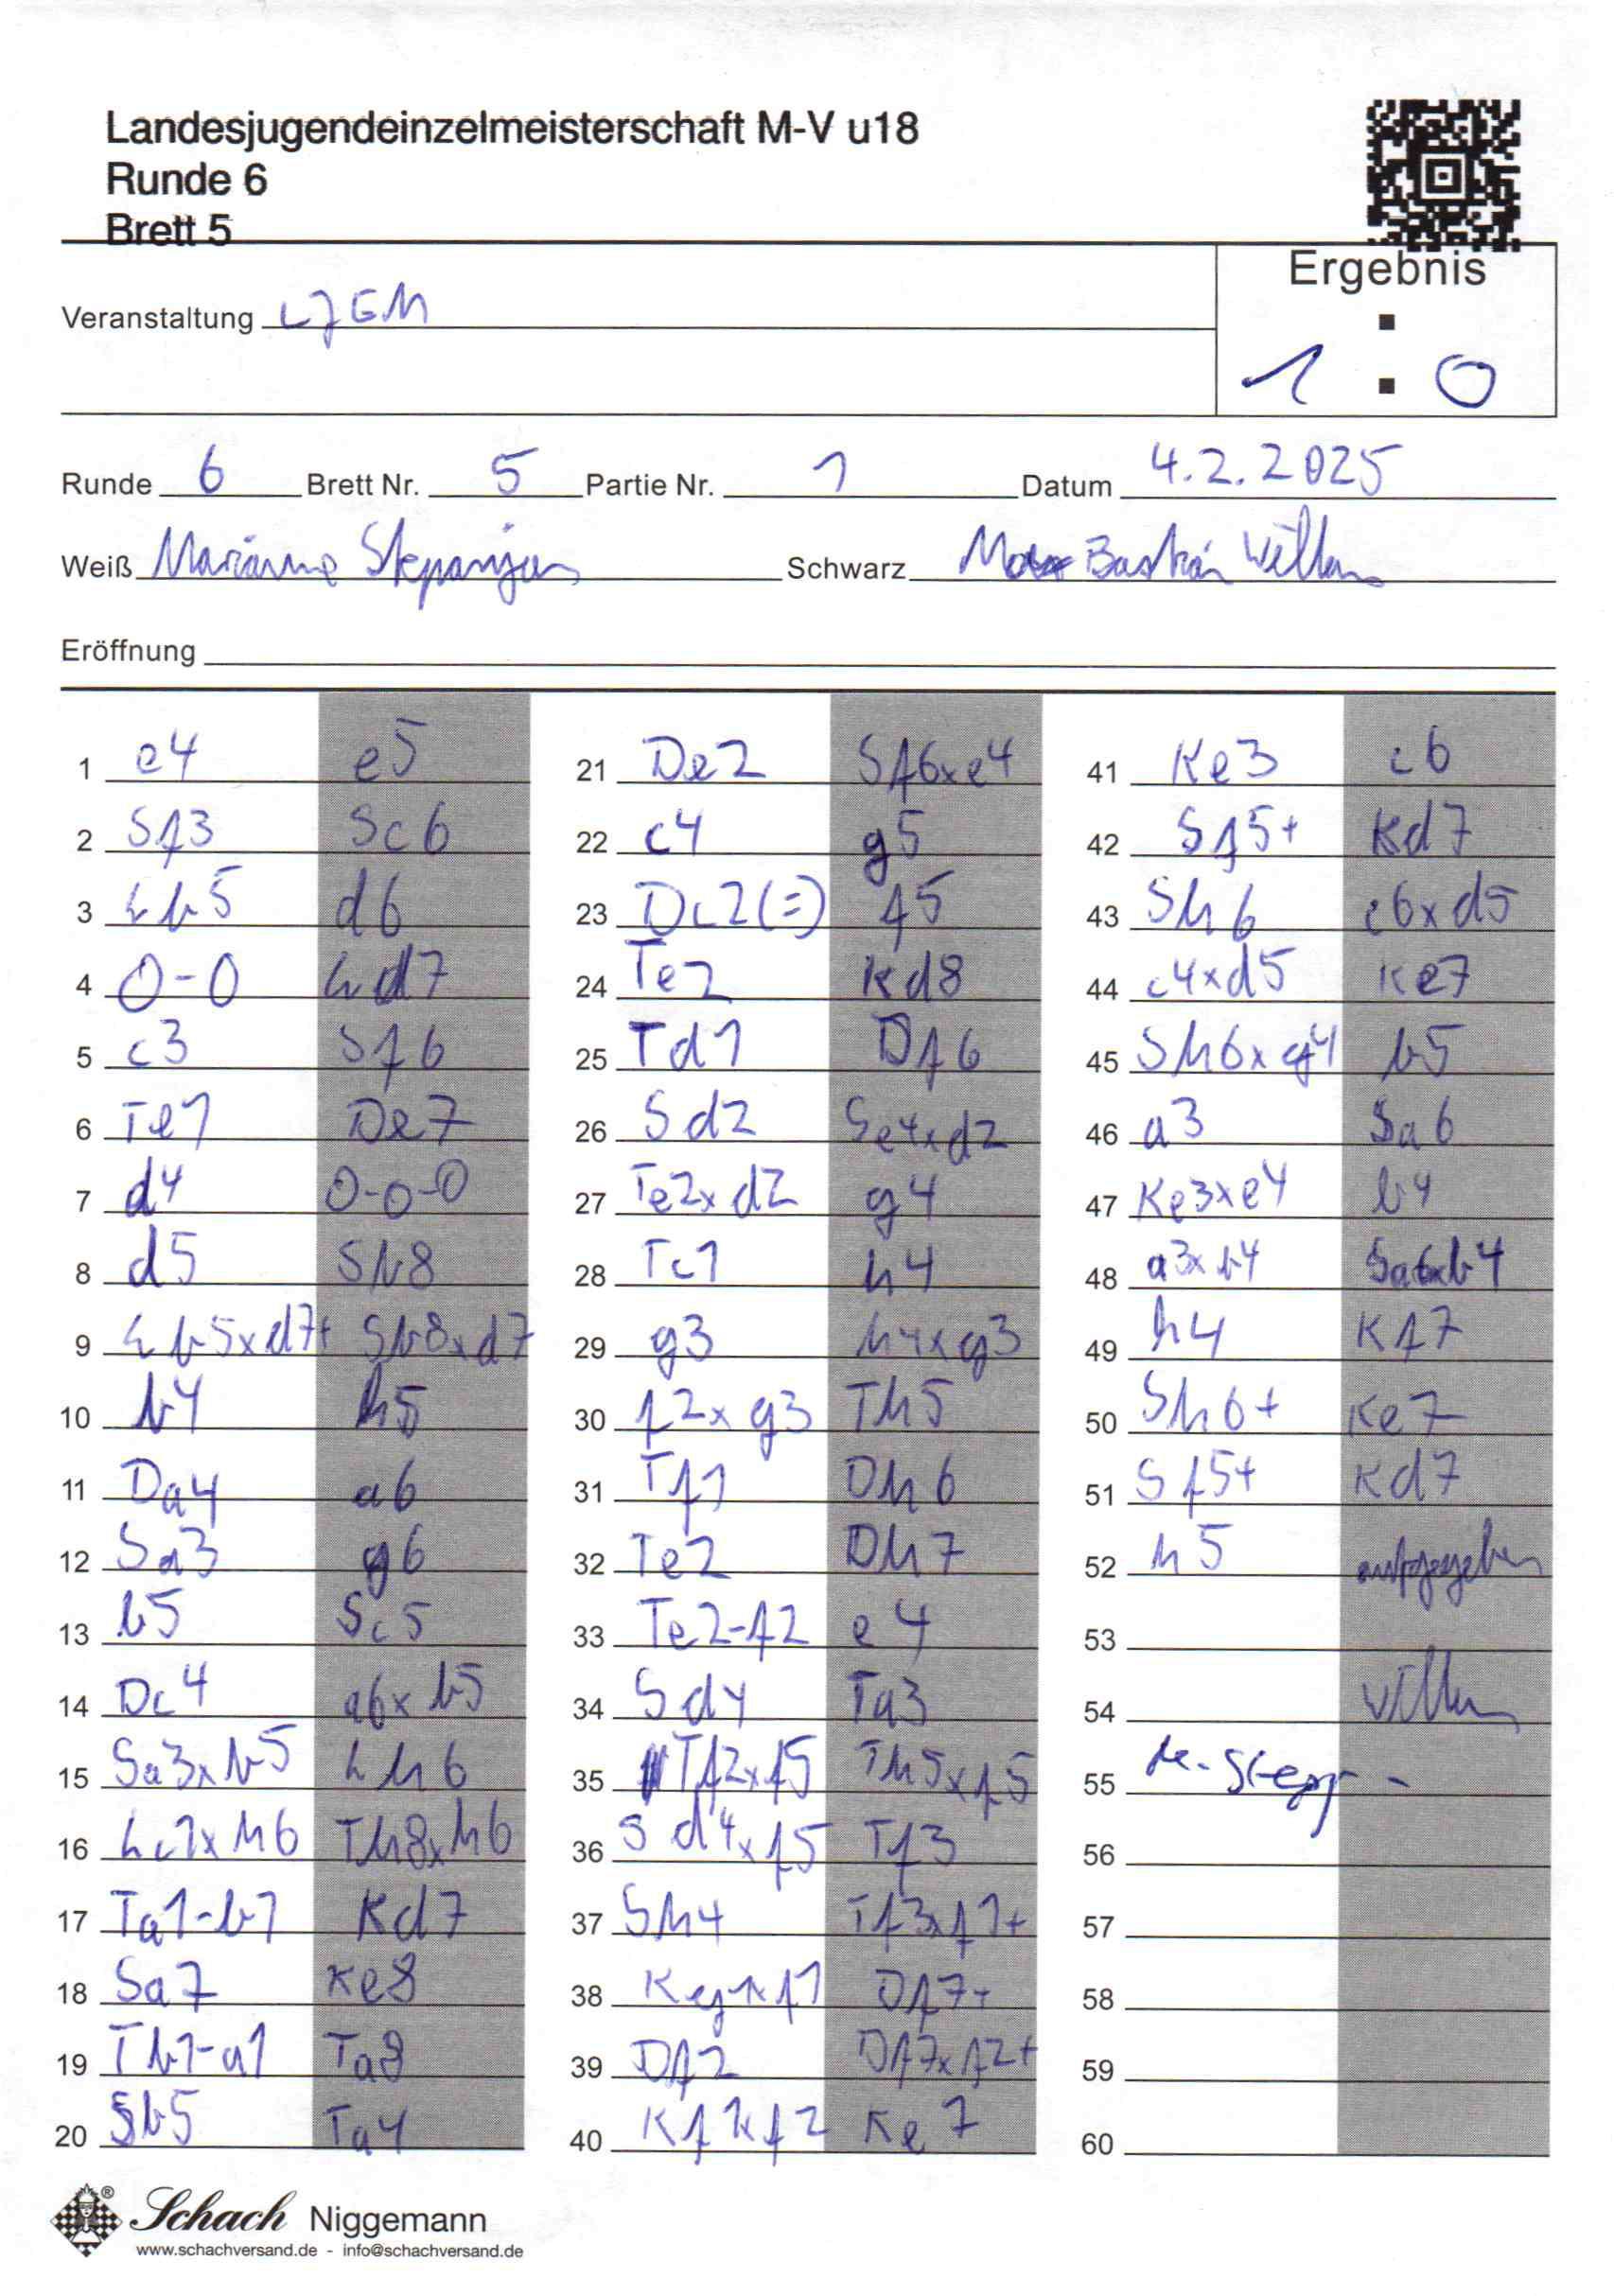 Landesjugendeinzelmeisterschaft M-V u18
Runde 6
Brett 5
Ergebnis
Veranstaltung LJEM
1 : 0
Runde 6 Brett Nr. 5 Partie Nr. 1 Datum 4.2.2025
Weiß Marianna Stepanjan Schwarz Bastian Willan
Eröffnung
1 e4 e5
2 Sf3 Sc6
3 Lb5 d6
4 0-0 Ld7
5 c3 Sf6
6 Te1 De7
7 d4 0-0-0
8 d5 Sb8
9 Lb5xd7+ Sb8xd7
10 b4 h5
11 Da4 a6
12 Sa3 g6
13 b5 Sc5
14 Dc4 a6xb5
15 Sa3xb5 Lh6
16 Lc1xh6 Th8xh6
17 Ta1-b1 Kd7
18 Sa7 Ke8
19 Tb1-a1 Ta8
20 Sb5 Ta4
21 De2 Sf6xe4
22 c4 g5
23 Dc2(=) f5
24 Te2 Kd8
25 Td1 Df6
26 Sd2 Se4xd2
27 Te2xd2 g4
28 Tc1 h4
29 g3 h4xg3
30 f2xg3 Th5
31 Tf1 Dh6
32 Te2 Dh7
33 Te2-f2 e4
34 Sd4 Ta3
35 Tf2xf5 Th5xf5
36 Sd4xf5 Tf3
37 Sh4 Tf3xf1+
38 Kg1xf1 Df7+
39 Df2 Df7xf2+
40 Kf1xf2 Ke7
41 Ke3 c6
42 Sf5+ Kd7
43 Sh6 c6xd5
44 c4xd5 Ke7
45 Sh6xg4 b5
46 a3 Sa6
47 Ke3xe4 b4
48 a3xb4 Sa6xb4
49 h4 Kf7
50 Sh6+ Ke7
51 Sf5+ Kd7
52 h5 aufgegeben
53
54 Willan
55 M. Step
56
57
58
59
60
Schach Niggemann
www.schachversand.de - info@schachversand.de